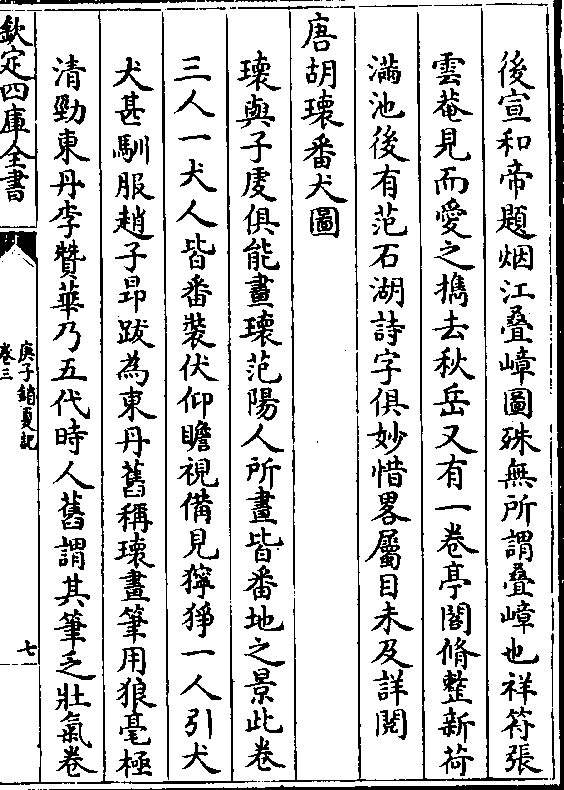 後宣和帝題烟江叠嶂圖殊無所謂叠嶂也祥符張
雲菴見而愛之擕去秋岳又有一卷亭閣脩整新荷
滿池後有范石湖詩字俱妙惜畧屬目未及詳閱
唐胡瓌番犬圖
瓌與子䖍俱能畫瓌范陽人所畫皆番地之景此卷
三人一犬人皆番裝伏仰瞻視備見獰猙一人引犬
犬甚馴服趙子昂跋為東丹舊稱瓌畫筆用狼毫極
清勁東丹李贊華乃五代時人舊謂其筆乏壯氣卷
欽定四庫全書
庚子銷夏記
卷三
七